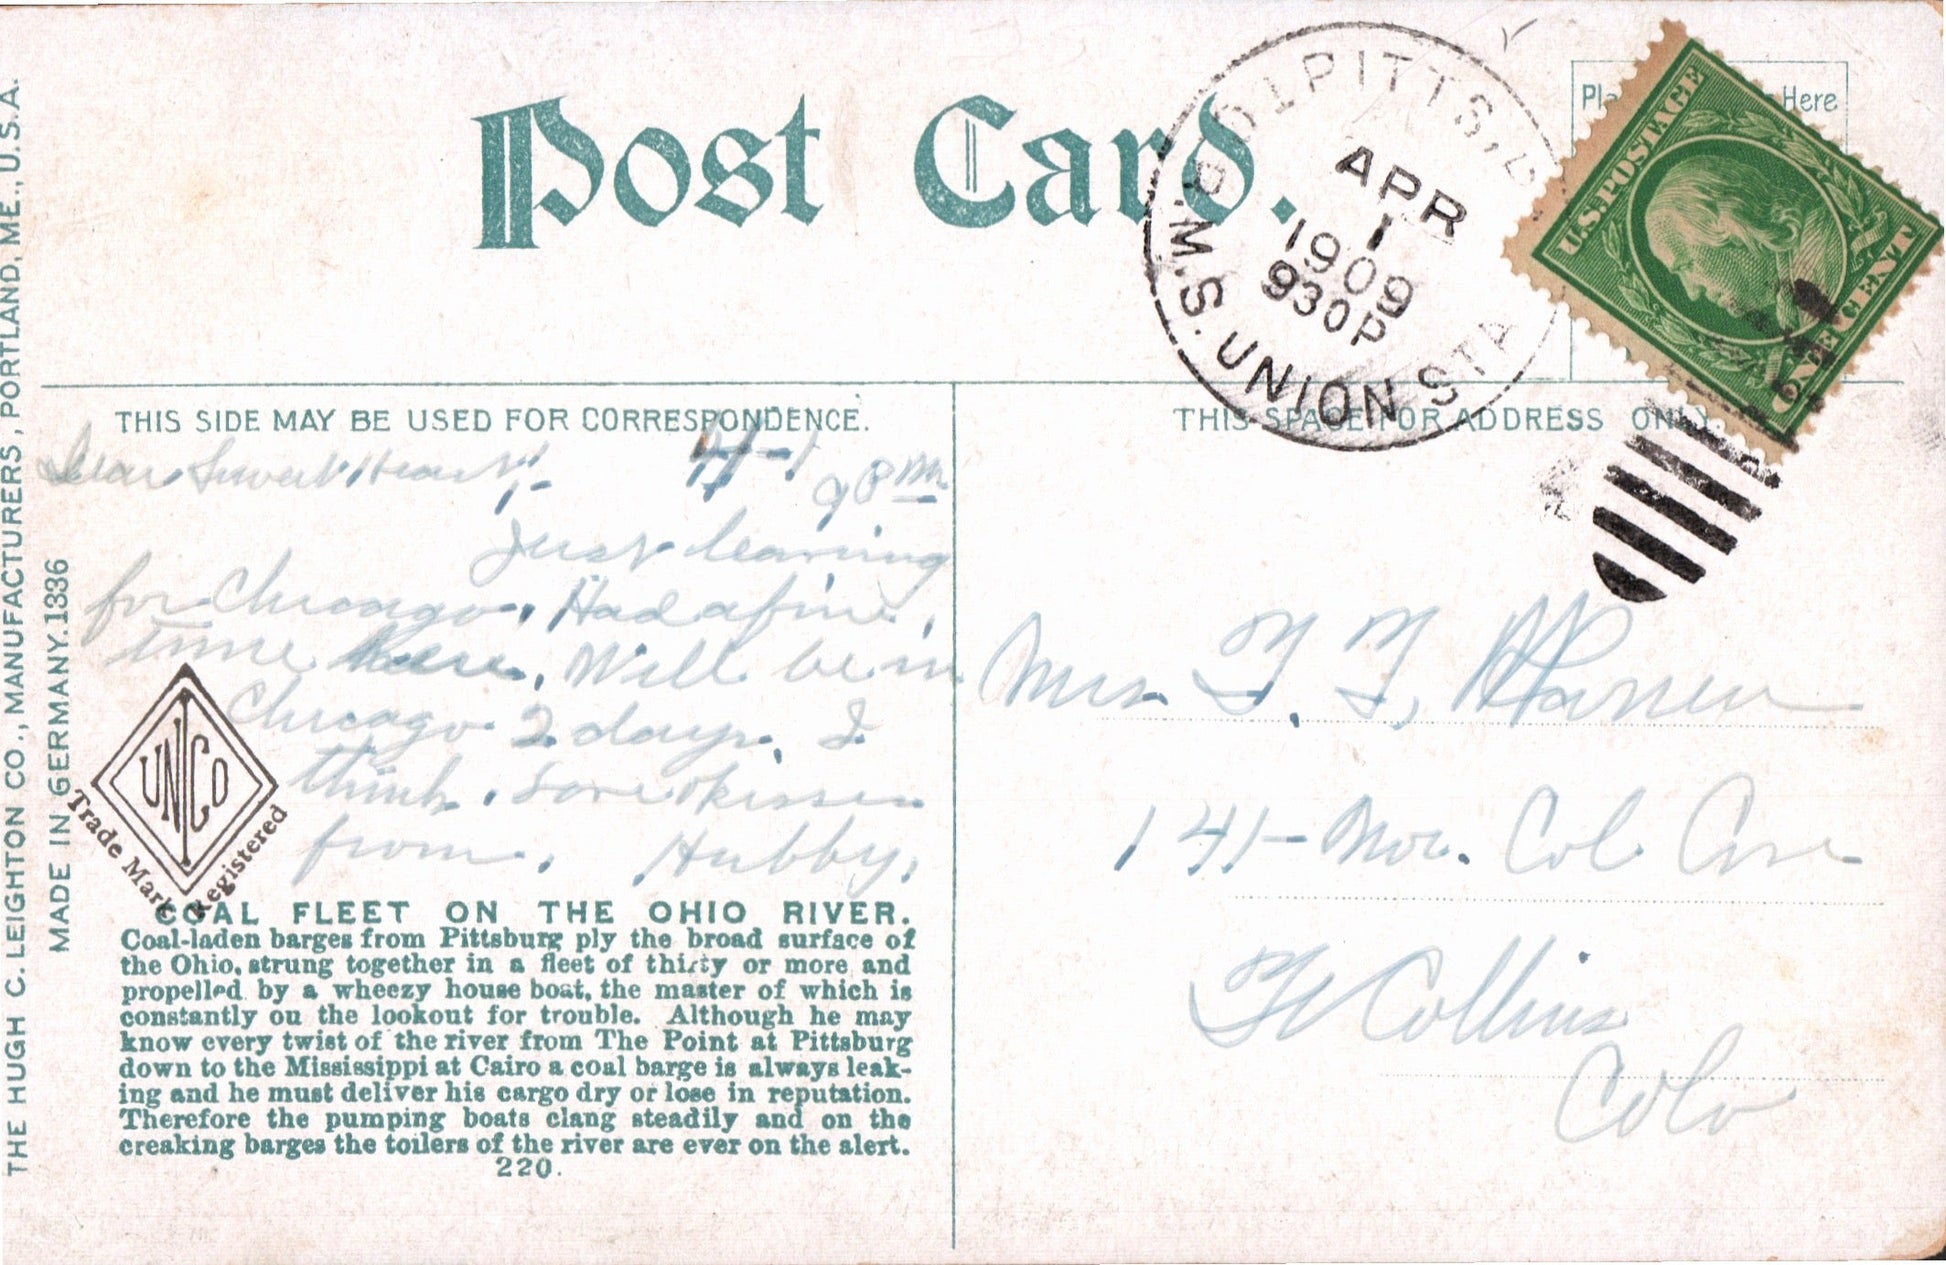 Post Card.
PITTS,
APR
1
1909
930P
R.M.S. UNION STA
Here
U.S. POSTAGE
ONE CENT
THIS SIDE MAY BE USED FOR CORRESPONDENCE.
THIS SPACE FOR ADDRESS ONLY.
Dear Sweet Heart:- 4-1
9 PM
Just leaving
for Chicago. Had a fine
time here. Will be in
Chicago 2 days, I
think. Love & kisses
from, Hubby,
Mrs. F. F. Warren
141- Nor. Col Ave
Ft Collins
Colo
UNCO
Trade Mark Registered
COAL FLEET ON THE OHIO RIVER.
Coal-laden barges from Pittsburg ply the broad surface of
the Ohio, strung together in a fleet of thirty or more and
propelled by a wheezy house boat, the master of which is
constantly on the lookout for trouble. Although he may
know every twist of the river from The Point at Pittsburg
down to the Mississippi at Cairo a coal barge is always leak-
ing and he must deliver his cargo dry or lose in reputation.
Therefore the pumping boats clang steadily and on the
creaking barges the toilers of the river are ever on the alert.
220.
THE HUGH C. LEIGHTON CO., MANUFACTURERS, PORTLAND, ME., U.S.A.
MADE IN GERMANY. 1336